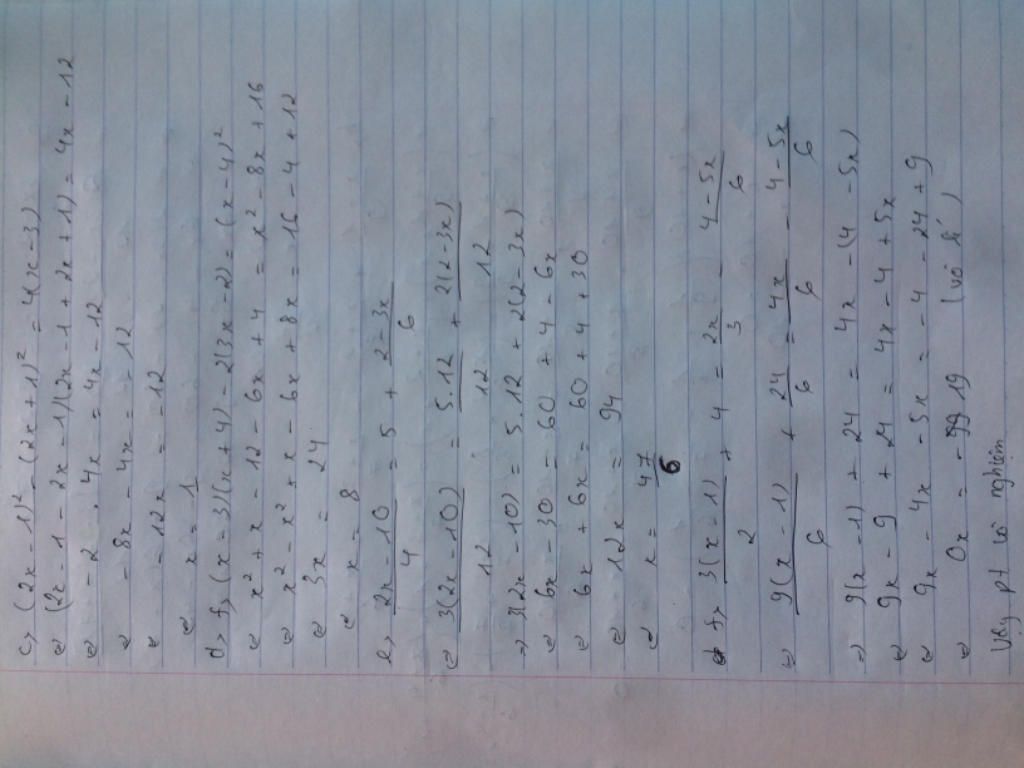 c, (2x - 1)² - (2x + 1)² = 4(x - 3)
⇔ (2x - 1 - 2x - 1)(2x - 1 + 2x + 1) = 4x - 12
⇔ - 2 . 4x = 4x - 12
⇔ - 8x - 4x = - 12
⇔ - 12x = - 12
⇔ x = 1
d, (x - 3)(x + 4) - 2(3x - 2) = (x - 4)²
⇔ x² + x - 12 - 6x + 4 = x² - 8x + 16
⇔ x² - x² + x - 6x + 8x = 16 - 4 + 12
⇔ 3x = 24
⇔ x = 8
e, (2x - 10)/4 = 5 + (2 - 3x)/6
⇔ 3(2x - 10)/12 = 5.12/12 + 2(2 - 3x)/12
⇒ 3(2x - 10) = 5.12 + 2(2 - 3x)
⇔ 6x - 30 = 60 + 4 - 6x
⇔ 6x + 6x = 60 + 4 + 30
⇔ 12x = 94
⇔ x = 47/6
f, 3(x - 1)/2 + 4 = 2x/3 - (4 - 5x)/6
⇒ 9(x - 1)/6 + 24/6 = 4x/6 - (4 - 5x)/6
⇒ 9(x - 1) + 24 = 4x - (4 - 5x)
⇔ 9x - 9 + 24 = 4x - 4 + 5x
⇔ 9x - 4x - 5x = - 4 - 24 + 9
⇔ 0x = - 19 (vô lí)
Vậy pt vô nghiệm